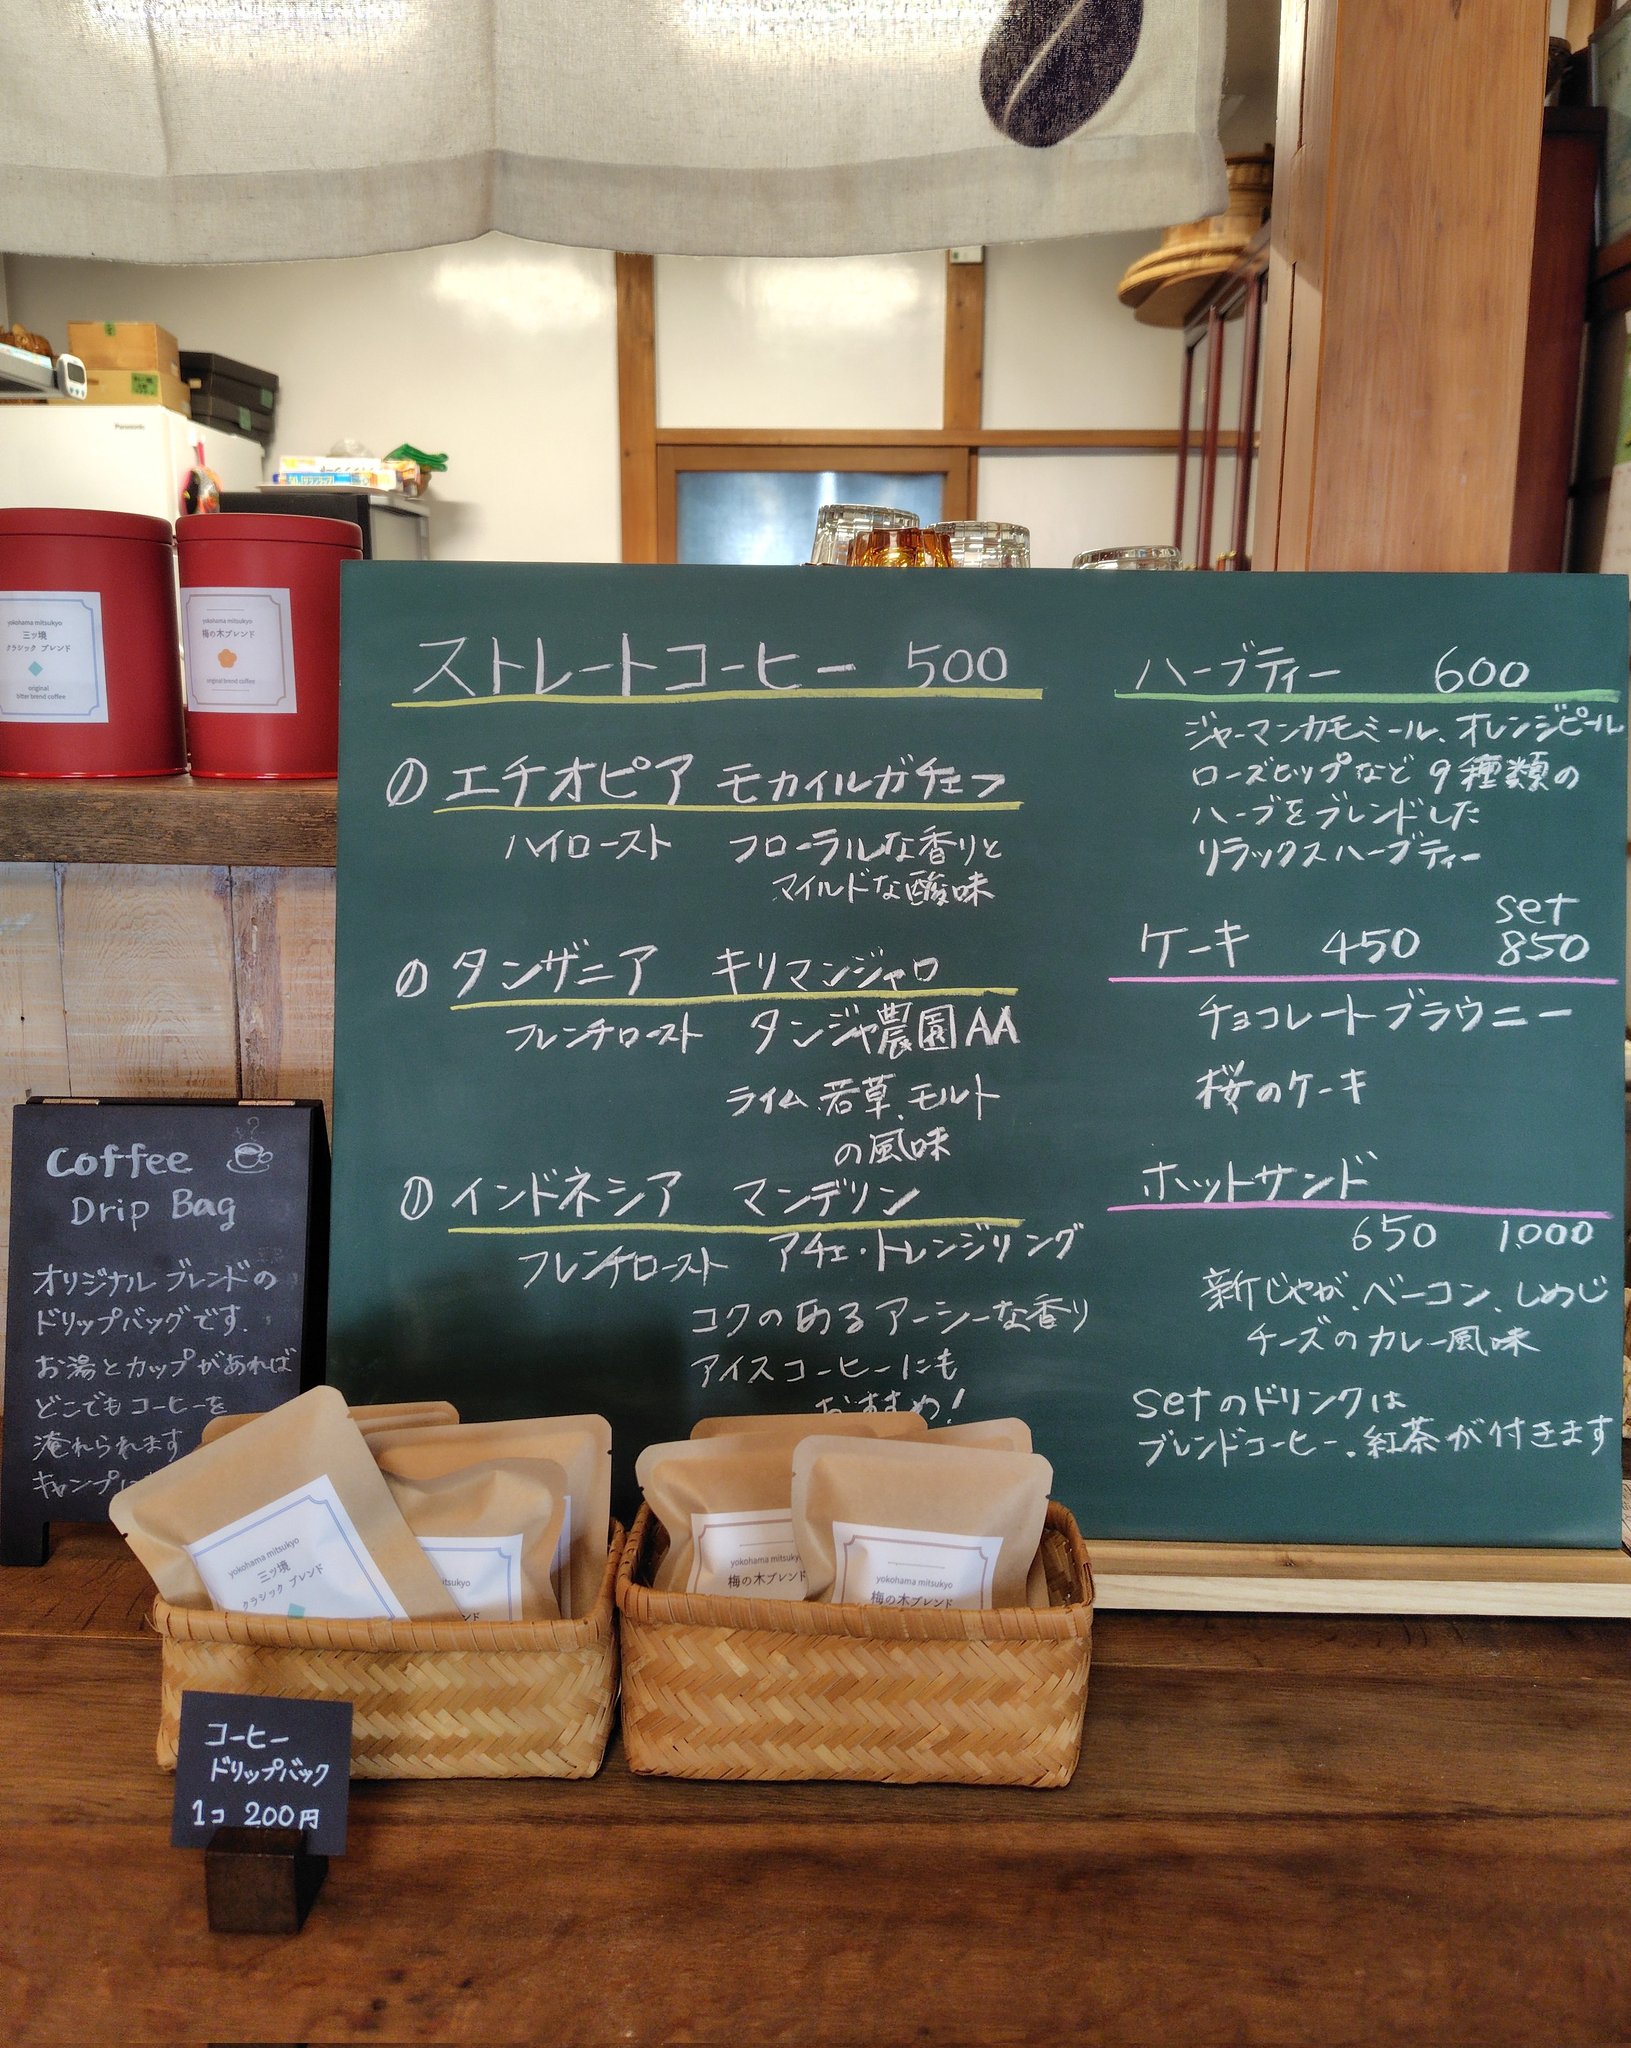 Panasonic
yokohama mitsukyo
三ッ境
クラシック ブレンド
original
bitter brend coffee
yokohama mitsukyo
梅の木ブレンド
original brend coffee
ストレートコーヒー 500
エチオピア モカイルガチェフ
ハイロースト フローラルな香りと
マイルドな酸味
タンザニア キリマンジャロ
フレンチロースト タンジャ農園AA
ライム、若草、モルト
の風味
インドネシア マンデリン
フレンチロースト アチェ・トレンジリング
コクのあるアーシーな香り
アイスコーヒーにも
おすすめ!
ハーブティー 600
ジャーマンカモミール、オレンジピール
ローズヒップなど9種類の
ハーブをブレンドした
リラックスハーブティー
set
ケーキ 450 850
チョコレートブラウニー
桜のケーキ
ホットサンド
650 1,000
新じゃが、ベーコン、しめじ
チーズのカレー風味
setのドリンクは
ブレンドコーヒー、紅茶が付きます
Coffee
Drip Bag
オリジナルブレンドの
ドリップバッグです。
お湯とカップがあれば
どこでもコーヒーを
淹れられます
キャンプに
yokohama mitsukyo
三ッ境
クラシック ブレンド
itsukyo
ンド
yokohama mitsuky
梅の木ブレンド
yokohama mitsukyo
梅の木ブレンド
コーヒー
ドリップバック
1コ 200円